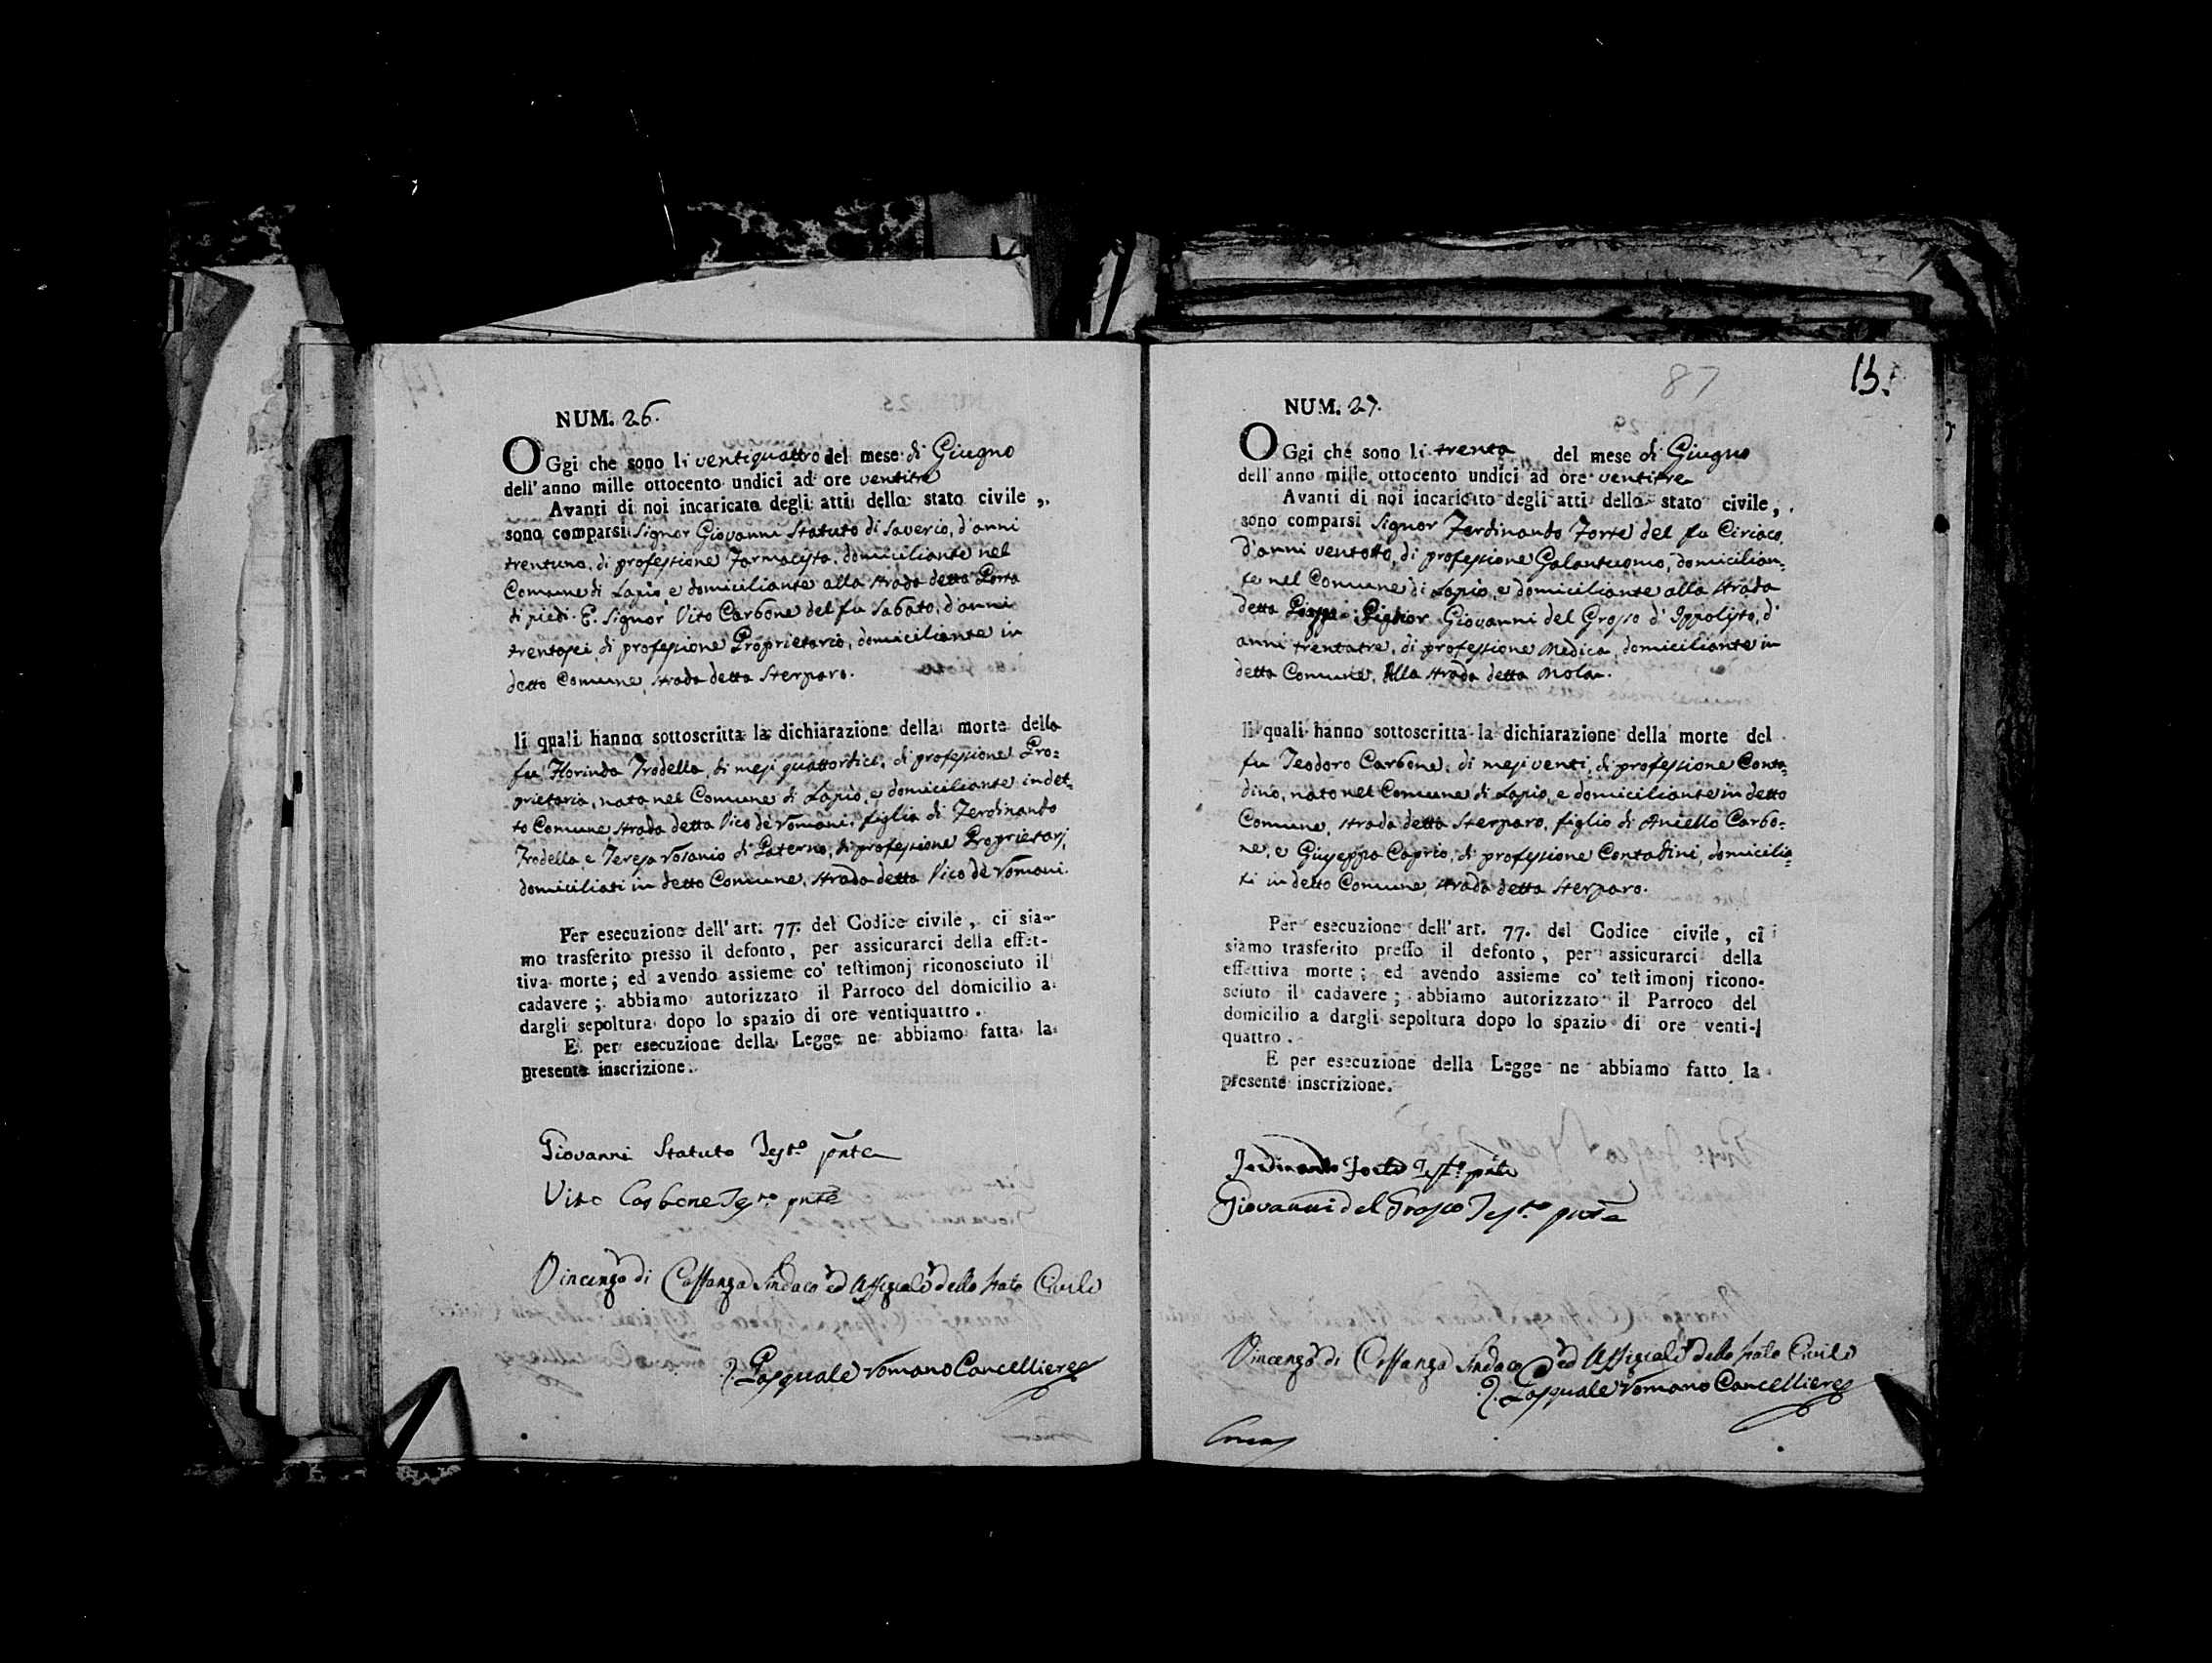 NUM. 26.
OGgi che sono li ventiquattro del mese di Giugno
dell'anno mille ottocento undici ad ore ventitre
Avanti di noi incaricato degli atti dello stato civile,
sono comparsi Signor Giovanni Statuto di Saverio, d'anni
trentuno, di professione Farmacista, domiciliante nel
Comune di Lapio, e domiciliante alla strada detta Porta
di piedi. E. Signor Vito Carbone del fu Sabato, d'anni
trentasei, di professione Proprietario, domiciliante in
detto Comune, strada detta Sterparo.
li quali hanno sottoscritta la dichiarazione della morte della
fu Florinda Trodella, di mesi quattordici, di professione Pro=
prietaria, nata nel Comune di Lapio, e domiciliante in det=
to Comune strada detta Vico de Romani, figlia di Ferdinando
Trodella e Teresa Rosanio di Paterno, di professione Proprietarj,
domiciliati in detto Comune, strada detta Vico de Romani.
Per esecuzione dell'art. 77. del Codice civile, ci sia-
mo trasferito presso il defonto, per assicurarci della effet-
tiva morte; ed avendo assieme co' testimonj riconosciuto il
cadavere; abbiamo autorizzato il Parroco del domicilio a
dargli sepoltura dopo lo spazio di ore ventiquattro.
E per esecuzione della Legge ne abbiamo fatta la
presente inscrizione.
Giovanni Statuto Testo pnte
Vito Carbone Testo pnte
Vincenzo di Costanzo Sindaco ed Uffiziale dello Stato Civile
Pasquale Romano Cancelliere
87
13.
NUM. 27.
OGgi che sono li trenta del mese di Giugno
dell'anno mille ottocento undici ad ore ventitre
Avanti di noi incaricato degli atti dello stato civile,
sono comparsi Signor Ferdinando Forte del fu Ciriaco,
d'anni ventotto, di professione Galantuomo, domicilian=
te nel Comune di Lapio, e domiciliante alla strada
detta Giovanni del Grosso d'Ippolito, d'
anni trentatre, di professione Medico, domiciliante in
detto Comune, alla strada detta Mola.
li quali hanno sottoscritta la dichiarazione della morte del
fu Teodoro Carbone, di mesi venti, di professione Conta=
dino, nato nel Comune di Lapio, e domiciliante in detto
Comune, strada detta Sterparo, figlio di Aniello Carbo=
ne, e Giuseppa Caprio, di professione Contadini, domicilia=
ti in detto Comune, strada detta Sterparo.
Per esecuzione dell'art. 77. del Codice civile, ci
siamo trasferito presso il defonto, per assicurarci della
effettiva morte; ed avendo assieme co' testimonj ricono-
sciuto il cadavere; abbiamo autorizzato il Parroco del
domicilio a dargli sepoltura dopo lo spazio di ore venti-
quattro.
E per esecuzione della Legge ne abbiamo fatto la
presente inscrizione.
Ferdinando Forte Testo pnte
Giovanni del Grosso Testo pnte
Vincenzo di Costanzo Sindaco ed Uffiziale dello Stato Civile
Pasquale Romano Cancelliere